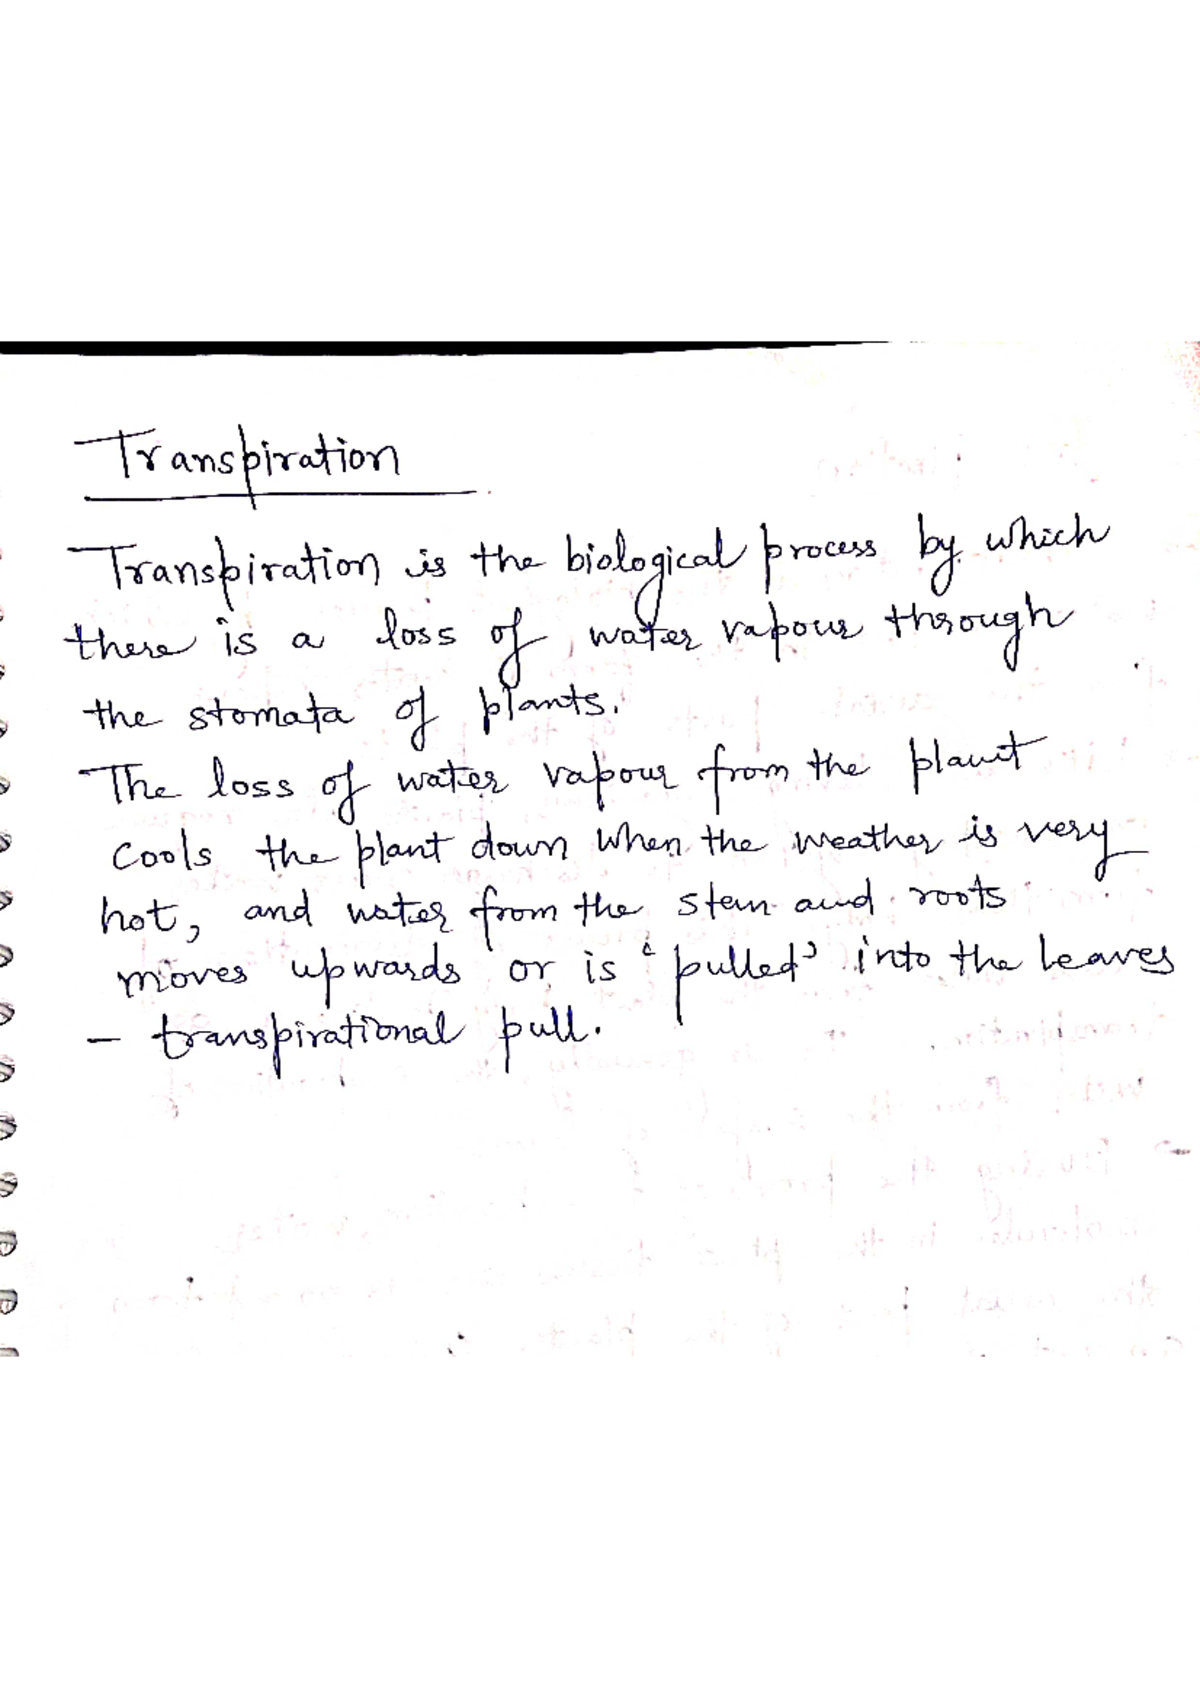 Transpiration
Transpiration is the biological process by which
there is a loss of water vapour through
the stomata of plants.
The loss of water vapour from the plant
cools the plant down when the weather is very
hot, and water from the stem and roots
moves upwards or is 'pulled' into the leaves
- transpirational pull.